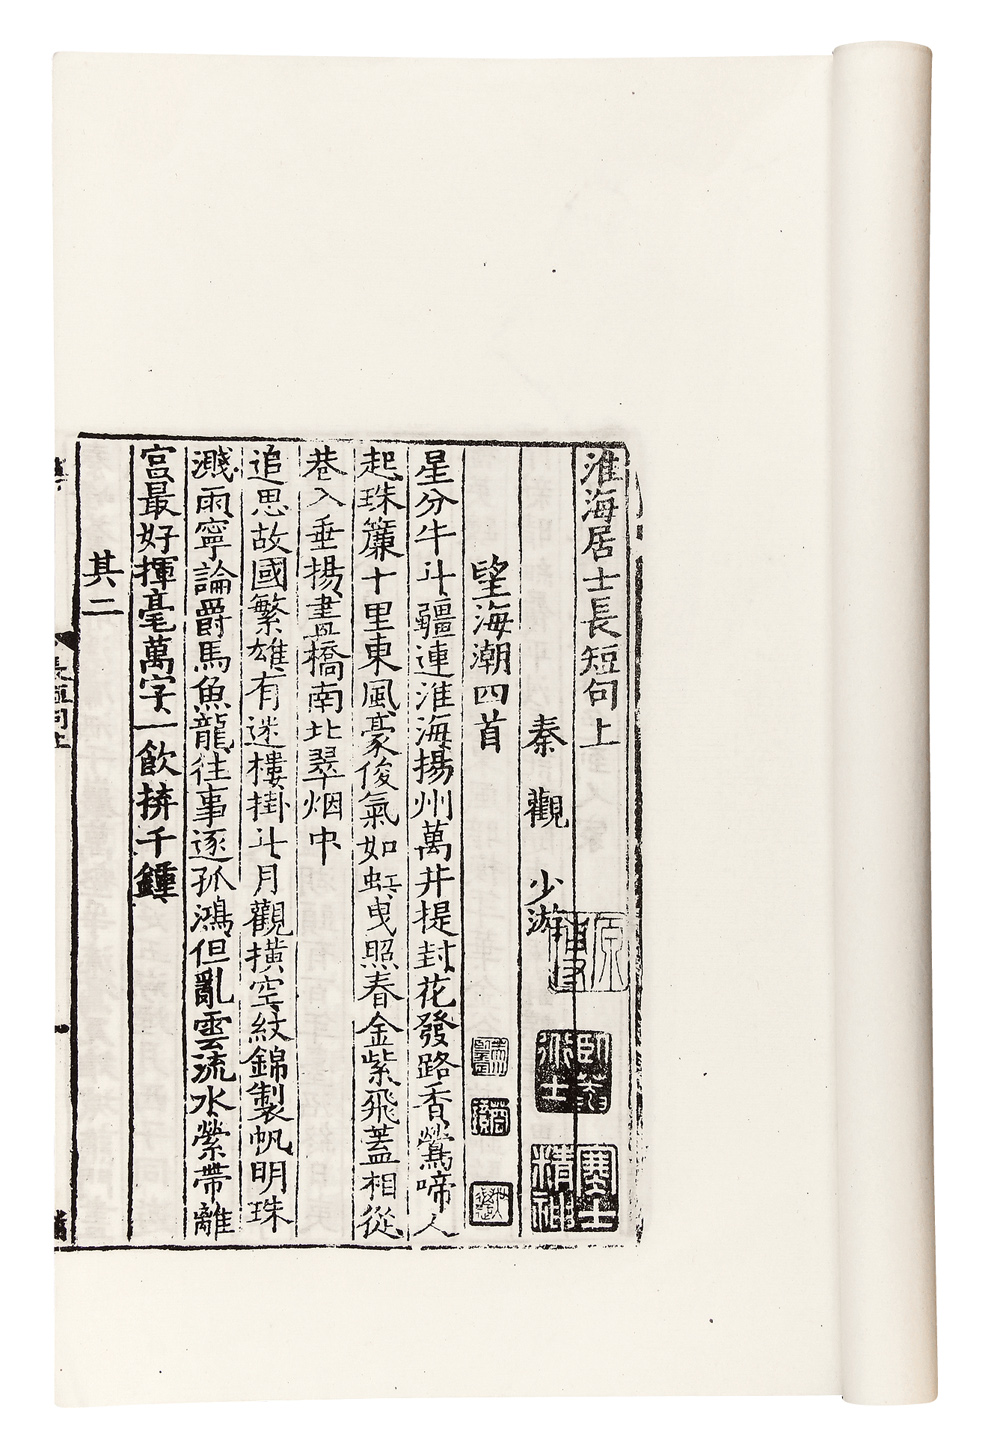 淮海居士長短句上
秦觀 少游
望海潮四首
星分牛斗疆連淮海揚州萬井提封花發路香鶯啼人
起珠簾十里東風豪俊氣如虹曳照春金紫飛蓋相從
巷入垂揚畫橋南北翠烟中
追思故國繁雄有迷樓掛斗月觀橫空紋錦製帆明珠
濺雨寧論爵馬魚龍往事逐孤鴻但亂雲流水縈帶離
宮最好揮毫萬字一飲拚千鍾
其二
長短句上